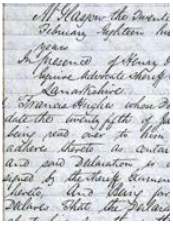 At Glasgow the Twente
February Eighteen hu
years
In presence of Henry
Esquire Advocate Sheriff
Lanarkshire
Francis Hughes whose D
date the twenty fifth of Ja
being read over to him
adheres thereto as conta
and said Declaration is
signed by the Sheriff
hereto, And being
Declares That the Declara